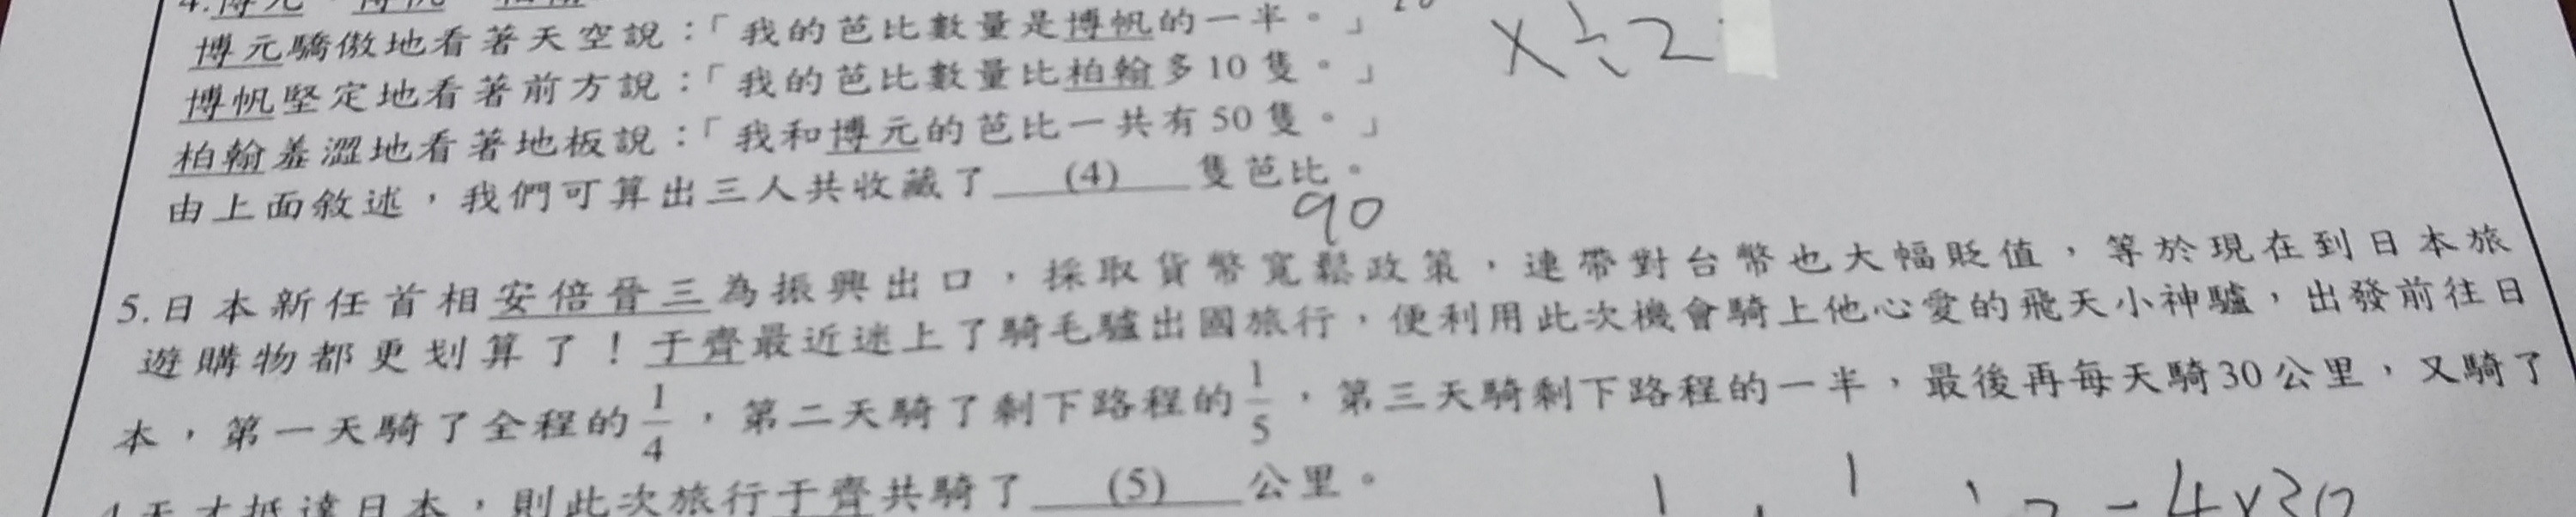 4.博元、博帆、柏翰
博元驕傲地看著天空說：「我的芭比數量是博帆的一半。」
x÷2
博帆堅定地看著前方說：「我的芭比數量比柏翰多10隻。」
柏翰羞澀地看著地板說：「我和博元的芭比一共有50隻。」
由上面敘述，我們可算出三人共收藏了 (4) 隻芭比。
90
5.日本新任首相安倍晉三為振興出口，採取貨幣寬鬆政策，連帶對台幣也大幅貶值，等於現在到日本旅
遊購物都更划算了！于齊最近迷上了騎毛驢出國旅行，便利用此次機會騎上他心愛的飛天小神驢，出發前往日
本，第一天騎了全程的1/4，第二天騎了剩下路程的1/5，第三天騎剩下路程的一半，最後再每天騎30公里，又騎了
4天才抵達日本，則此次旅行于齊共騎了 (5) 公里。
=4x30